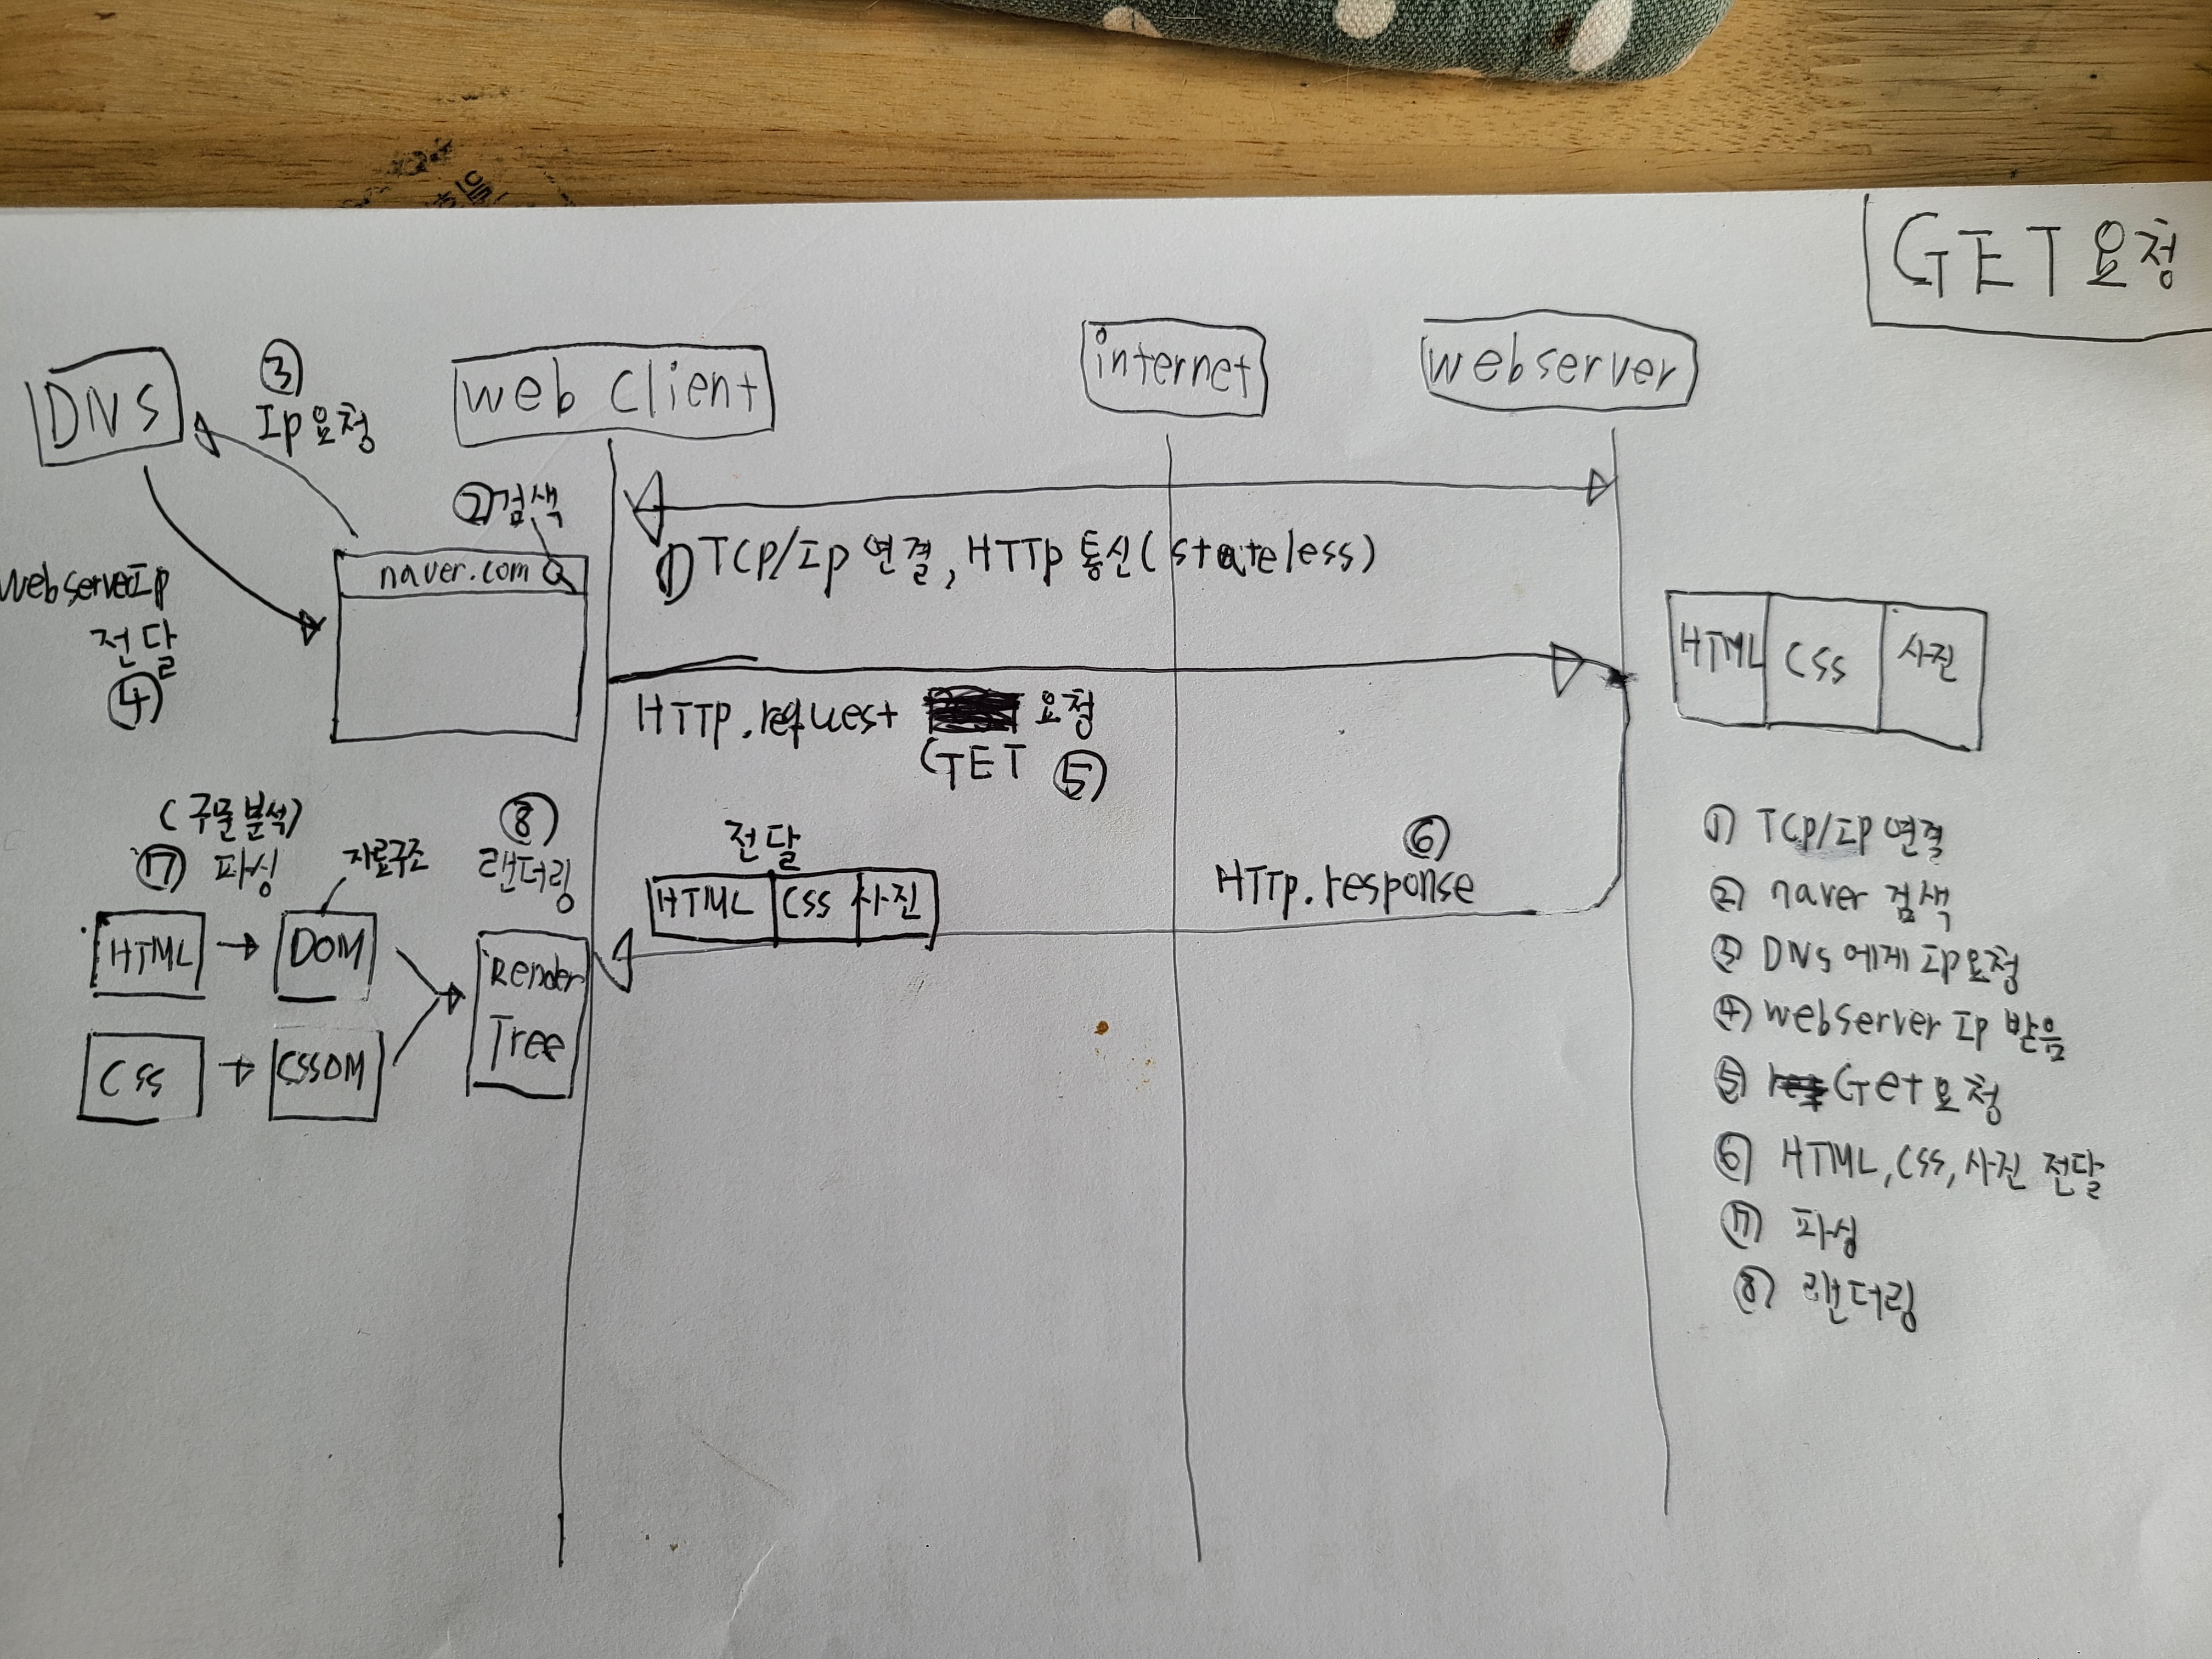 GET 요청
DNS
③
Ip요청
web client
internet
webserver
②검색
naver.com
① TCP/Ip 연결, HTTp 통신(stateless)
webserverIp
전달
④
HTTp.request 요청
GET ⑤
HTML CSS 사진
(구문분석)
⑦ 파싱
자료구조
⑧
랜더링
HTML → DOM
CSS → CSSOM
Render
Tree
전달
HTML CSS 사진
⑥
HTTp.response
① TCp/Ip 연결
② naver 검색
③ DNS에게 Ip요청
④ webserver Ip 받음
⑤ Get 요청
⑥ HTML, CSS, 사진 전달
⑦ 파싱
⑧ 랜더링